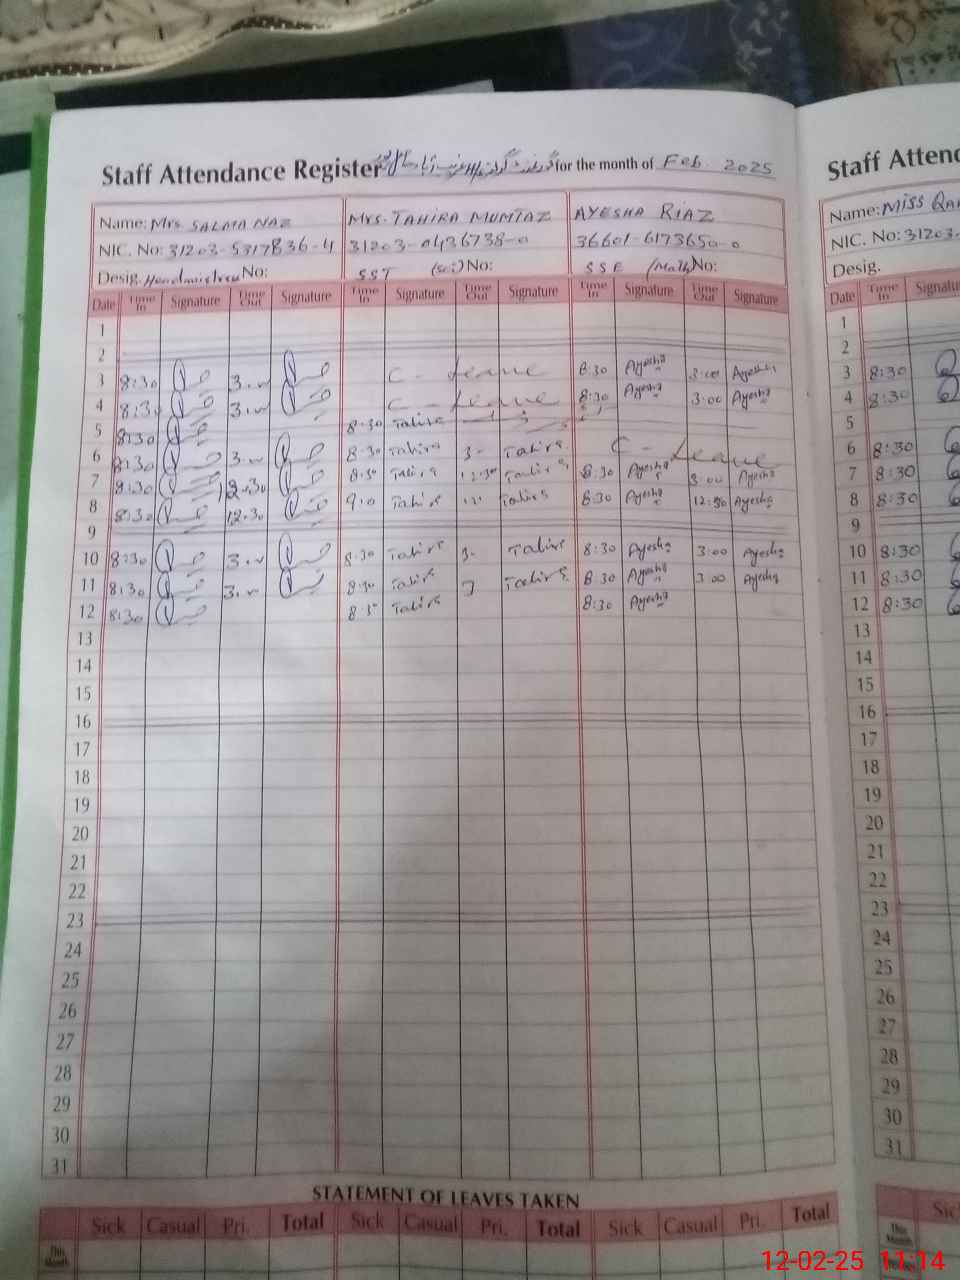 Staff Attendance Register for the month of Feb. 2025
Staff Attend
Name: Mrs SALMA NAZ Mrs. TAHIRA MUMTAZ AYESHA RIAZ
Name: MISS
NIC. No: 31203-5317836-4 31203-0436738-0 36601-6173650-0
NIC. No: 31203-
Desig. Headmistress No: SST (Sci) No: SSE (Math) No:
Desig.
Date Time In Signature Time Out Signature Time In Signature Time Out Signature Time In Signature Time Out Signature
Date Time In Signatu
1
2
3 8:30 3. C - Leave 8:30 Ayesha 3:00 Ayesha
4 8:30 3. C - Leave 8:30 Ayesha 3:00 Ayesha
5 8:30 8-30 Tahira
6 8:30 3. 8-30 Tahira 3- Tahira C - Leave
7 8:30 12.30 8:30 Tahira 12.30 Tahira 8:30 Ayesha 3:00 Ayesha
8 8:30 12.30 9.0 Tahira Tahira 8:30 Ayesha 12:30 Ayesha
9
10 8:30 3. 8.30 Tahira 3- Tahira 8:30 Ayesha 3:00 Ayesha
11 8:30 3. 8:30 Tahira 3 Tahira 8:30 Ayesha 3:00 Ayesha
12 8:30 Tahira 8:30 Ayesha
13
14
15
16
17
18
19
20
21
22
23
24
25
26
27
28
29
30
31
1
2
3 8:30
4 8:30
5
6 8:30
7 8:30
8 8:30
9
10 8:30
11 8:30
12 8:30
13
14
15
16
17
18
19
20
21
22
23
24
25
26
27
28
29
30
31
STATEMENT OF LEAVES TAKEN
Sick Casual Pri. Total Sick Casual Pri. Total Sick Casual Pri. Total
Sic
This Month
This Month
12-02-25 11:14